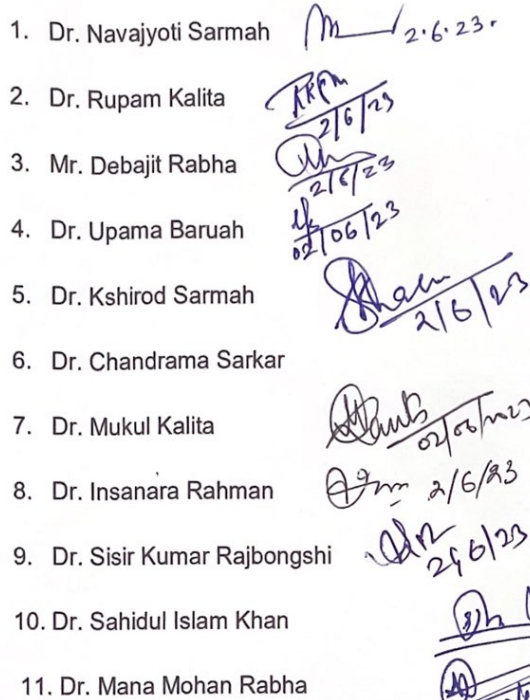 1. Dr. Navajyoti Sarmah 2.6.23.
2. Dr. Rupam Kalita 2/6/23
3. Mr. Debajit Rabha 2/6/23
4. Dr. Upama Baruah 02/06/23
5. Dr. Kshirod Sarmah 2/6/23
6. Dr. Chandrama Sarkar
7. Dr. Mukul Kalita 02/06/2023
8. Dr. Insanara Rahman 2/6/23
9. Dr. Sisir Kumar Rajbongshi
10. Dr. Sahidul Islam Khan
11. Dr. Mana Mohan Rabha